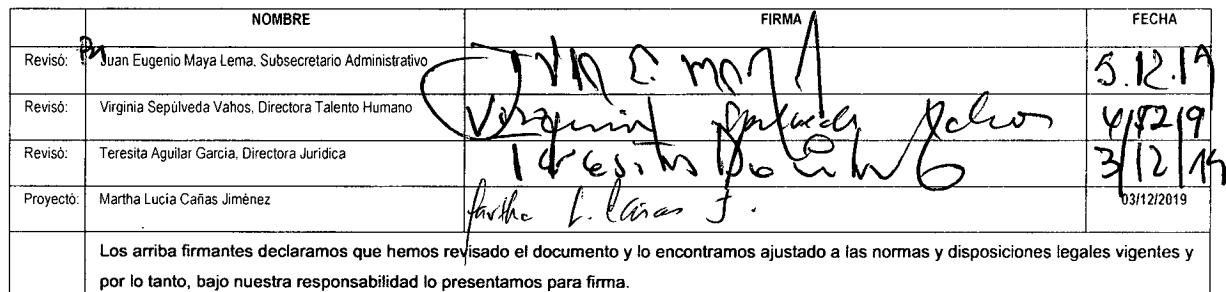 NOMBRE FIRMA FECHA
Revisó: Juan Eugenio Maya Lema, Subsecretario Administrativo 5.12.19
Revisó: Virginia Sepúlveda Vahos, Directora Talento Humano Virginia Sepúlveda Vahos
Revisó: Teresita Aguilar García, Directora Jurídica 3/12/19
Proyectó: Martha Lucía Cañas Jiménez Martha L. Cañas J. 03/12/2019
Los arriba firmantes declaramos que hemos revisado el documento y lo encontramos ajustado a las normas y disposiciones legales vigentes y
por lo tanto, bajo nuestra responsabilidad lo presentamos para firma.